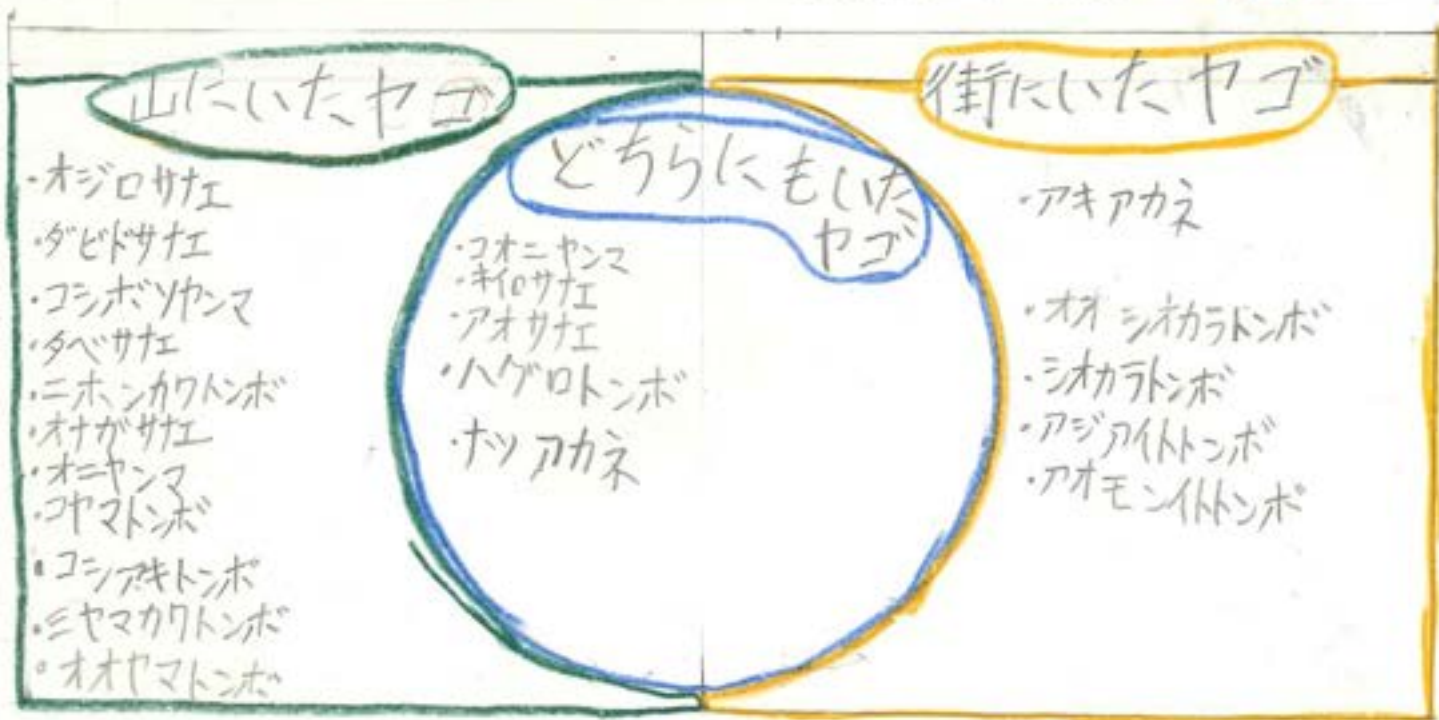 山にいたヤゴ
・オジロサナエ
・ダビドサナエ
・コシボソヤンマ
・タベサナエ
・ニホンカワトンボ
・オナガサナエ
・オニヤンマ
・コヤマトンボ
・コシアキトンボ
・ミヤマカワトンボ
・オオヤマトンボ
どちらにもいた
ヤゴ
・コオニヤンマ
・キイロサナエ
・アオサナエ
・ハグロトンボ
・ナツアカネ
街にいたヤゴ
・アキアカネ
・オオシオカラトンボ
・シオカラトンボ
・アジアイトトンボ
・アオモンイトトンボ